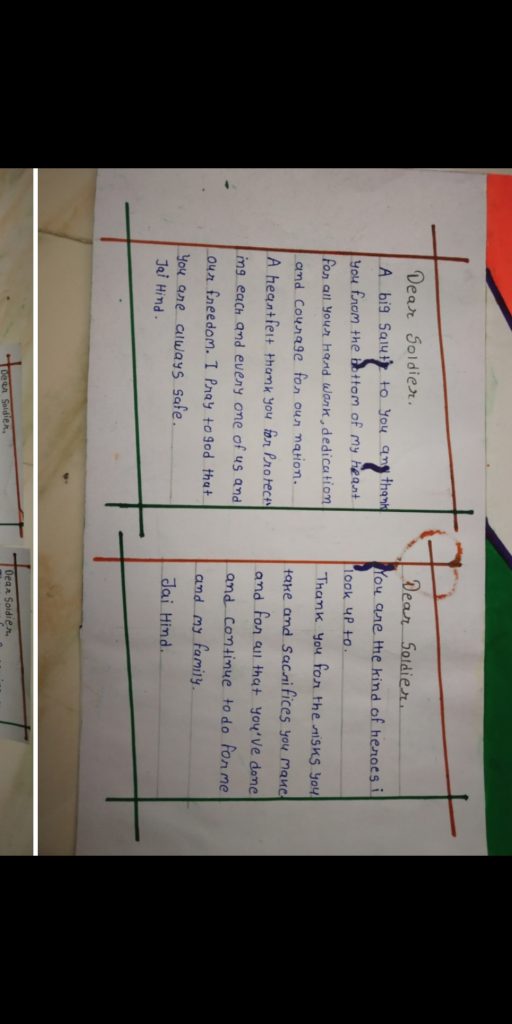 Dear Soldier.
A big Salute to you and thank
you from the bottom of my heart
for all your hard work, dedication
and courage for our nation.
A heartfelt thank you for Protect
ing each and every one of us and
our freedom. I Pray to god that
you are always safe.
Jai Hind.
Dear Soldier.
You are the kind of heroes i
look up to.
Thank you for the risks you
take and sacrifices you make
and for all that you've done
and continue to do for me
and my family.
Jai Hind.
Dear Soldier.
Dear Soldier.